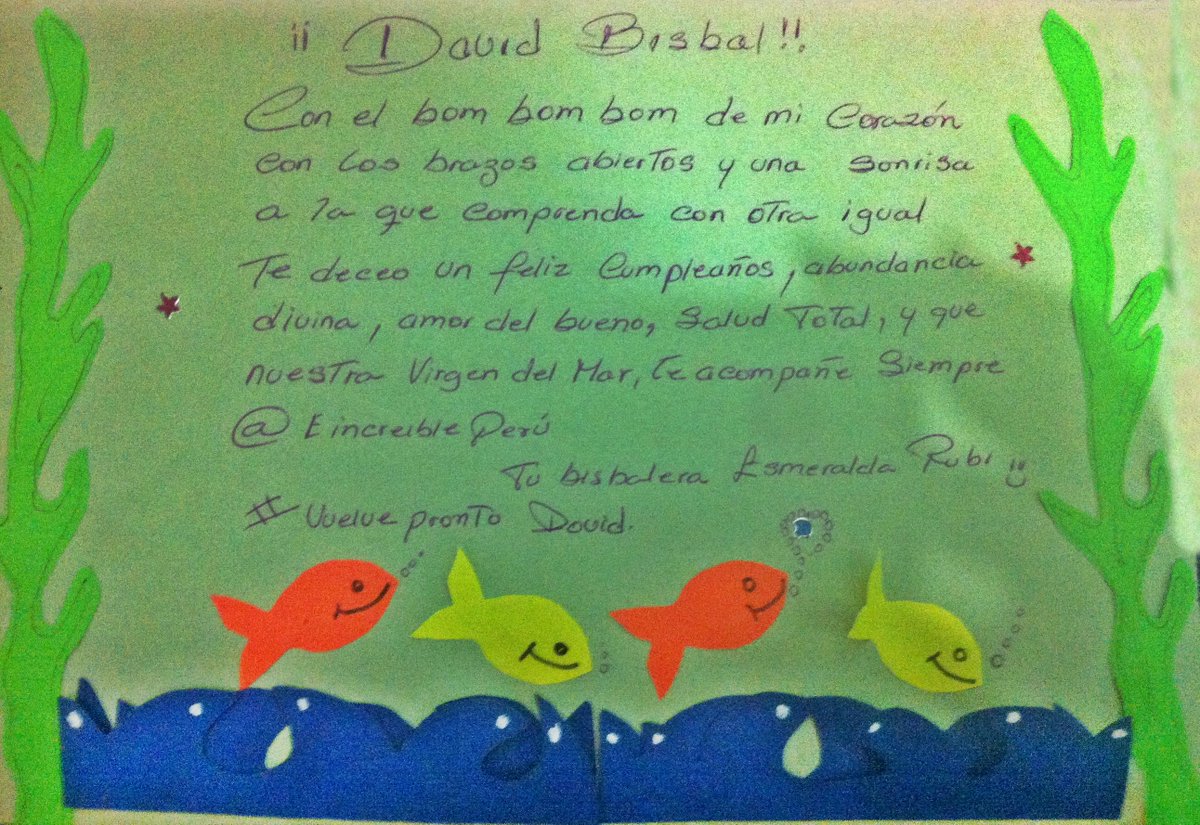 ¡¡ David Bisbal!!
Con el bom bom bom de mi Corazón
con los brazos abiertos y una sonrisa
a la que comprenda con otra igual
Te deceo un feliz Cumpleaños, abundancia
divina, amor del bueno, Salud Total, y que
nuestra Virgen del Mar, te acompañe Siempre
@ E increible Perú
Tu bisbalera Esmeralda Rubi
# Vuelve pronto David.